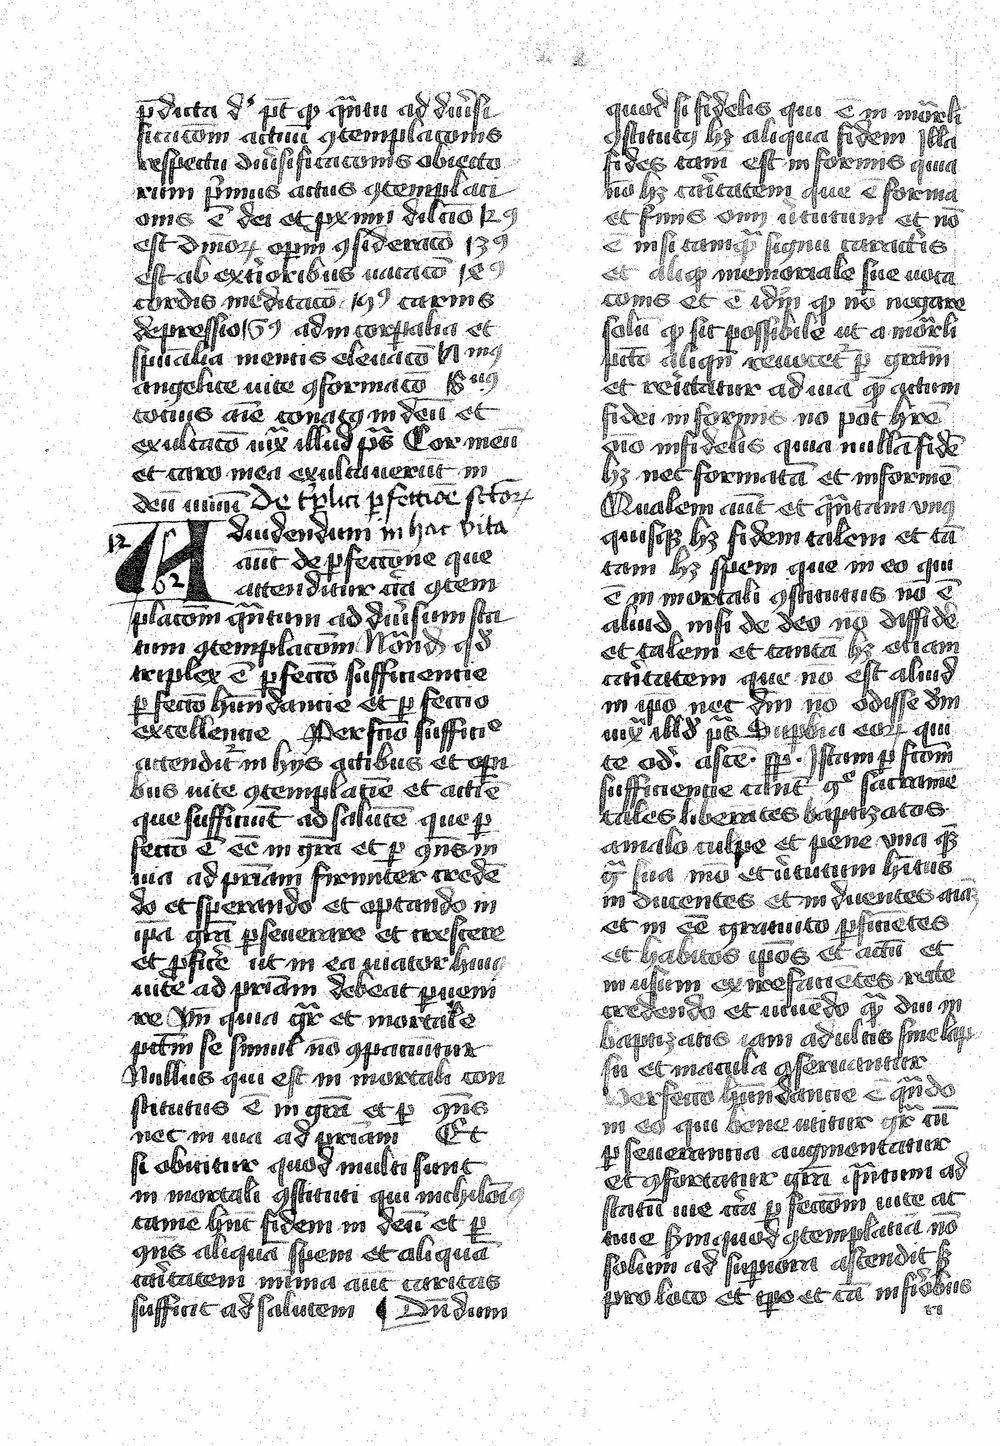 p̄dicta ds pt̄ ꝙ q̄ntu ad diu̓si
ficacōm actuū ꝯtemplacōnis
respectu diu̓sificacōnis obiecto
rum p̓mus actus ꝯtemplaci
onis ē dei et pximi dilcīo 12ꝯ
est diuinorꝝ opm̄ ꝯsideracō 13ꝯ
est ab ext̓ioribus uacacō
cordis meditacō carnis
depressio ad incorꝑalia et
spūalia mentis eleuacō
angelice uite ꝯformacō
tocius aīe conatꝯ in deū et
exultacō iux̄ illud ps̄ Cor meū
et caro mea exultauerūt in
deū uiuū De t̓plici ꝑfectiōe sc̄torꝝ
Aduidendum in hac vita
aūt de ꝑfeccōne que
attenditur c̓ca ꝯtem
placōm q̄ntum ad diu̓sum sta
tum ꝯtemplacōm Nōnd ꝙd
triplex ē ꝑfeccō sufficiencie
ꝑfeccō hūndancie et ꝑfeccio
excellencie Perfectio sufficiē
attendit̓ in hijs actibus et oꝑi
bus uite ꝯtemplatīe et actīe
que sufficiūt ad salutē que ꝑ
feccō ē eē in gr̄a et ꝑ ꝯn̄s in
uia ad pr̄iam firmiter crede
do et sperando et optando in
ip̄a gr̄a ꝑseuerare et crescere
et ꝓficē ut in ea uiator huiꝯ
uite ad pr̄iam debeat ꝑueni
re Vn̄ quia gr̄ et mortale
pct̄m se simul nō ꝯpaciūtur
Nullus qui est in mortali con
stitutus ē in gr̄a et ꝑ ꝯn̄s
nec in uia ad pr̄iam Et
si obicitur quod multi sunt
in mortali ꝯstituti qui nichilōiꝯ
tamē hn̄t fidem in deū et ꝑ
ꝯn̄s aliquā spem et aliquā
cāitatem minima aūt caritas
sufficit ad salutem Dn̄dum
quod si fidelis qui ē in mōrli
ꝯstitutꝯ hꝫ aliqua fidem Illa
fides tam est informis quia
nō hꝫ cāitatem que ē forma
et finis oīm u̓tutum et nō
ē nisi tamq̄ signū caract̓is
et aliqꝫ memoriale sue uoca
cōnis et ē idm̄ ꝙ nō negare
solū ꝙ sit possibile ut a mōrli
pct̄o aliqn̄ reuocet̓ ꝑ gr̄am
et redcatur ad uia q̄ actum
fidei informis no pōt hrē
nō infidelis quia nullā fidē
hꝫ nec formatā et informē
Qualem aūt et q̄ntam unꝯ
quisqꝫ hꝫ fidem talem et tā
tam hꝫ spem que in eo qui
ē in mortali ꝯstitutus nō ē
aliud nisi de deo nō diffidē
et talem et tantā hꝫ etiam
cāitatem que nō est aliud
in ipō nec dm̄ nō odisse dm̄
iux̄ illd ps̄ Suꝑbia eorꝝ qui
te od. asce. sꝑ. Istam ꝑfcōm
sufficiencie cānt gͤ sacrame
tales liberātes baptizatos
a malo culpe et pene una qꝫ
gͤ sua mō et u̓tutum hītus
inducentes et induentes aīaꝫ
et in eē gratuito ꝑficietes
et habitos ipōs et actū et
in usum exire facietes recte
credendo et uiuēdo q̄ diu in
baptizatis iam adultis sine lap
su et macula ꝯseruantur
Perfeccō hūndancie ē qn̄do
in eo qui bene utitur gr̄ cū
ꝑseuerancia augmentatur
et ꝯfortatur gr̄a q̄ntum ad
statū uie c̓ca ꝑfeccōm uite ac
tiue s̄m quod ꝯtemplatīa nō
solum ad suꝑiora ascendit sꝫ
pro loco et tꝑe et cā infiōbus